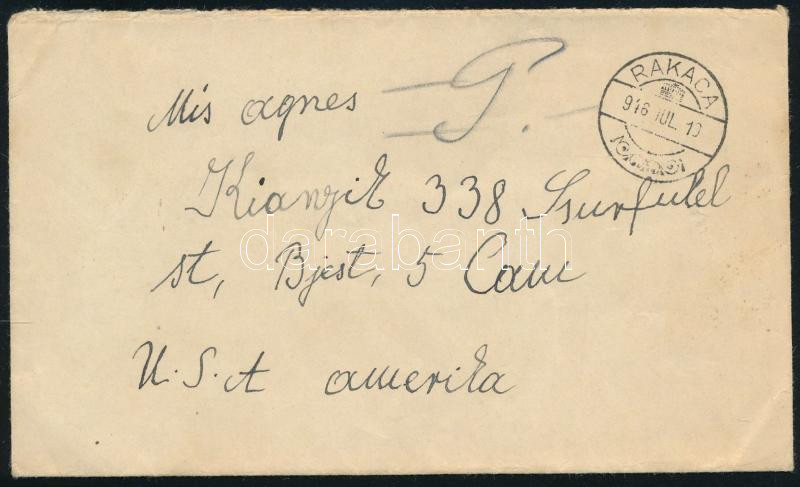 RAKACA
916 JUL. 10
Mis agnes
P.
Kianzik 338 Surfulel
st, Bjest, 5 Cam
U.S.A amerika
darabanth